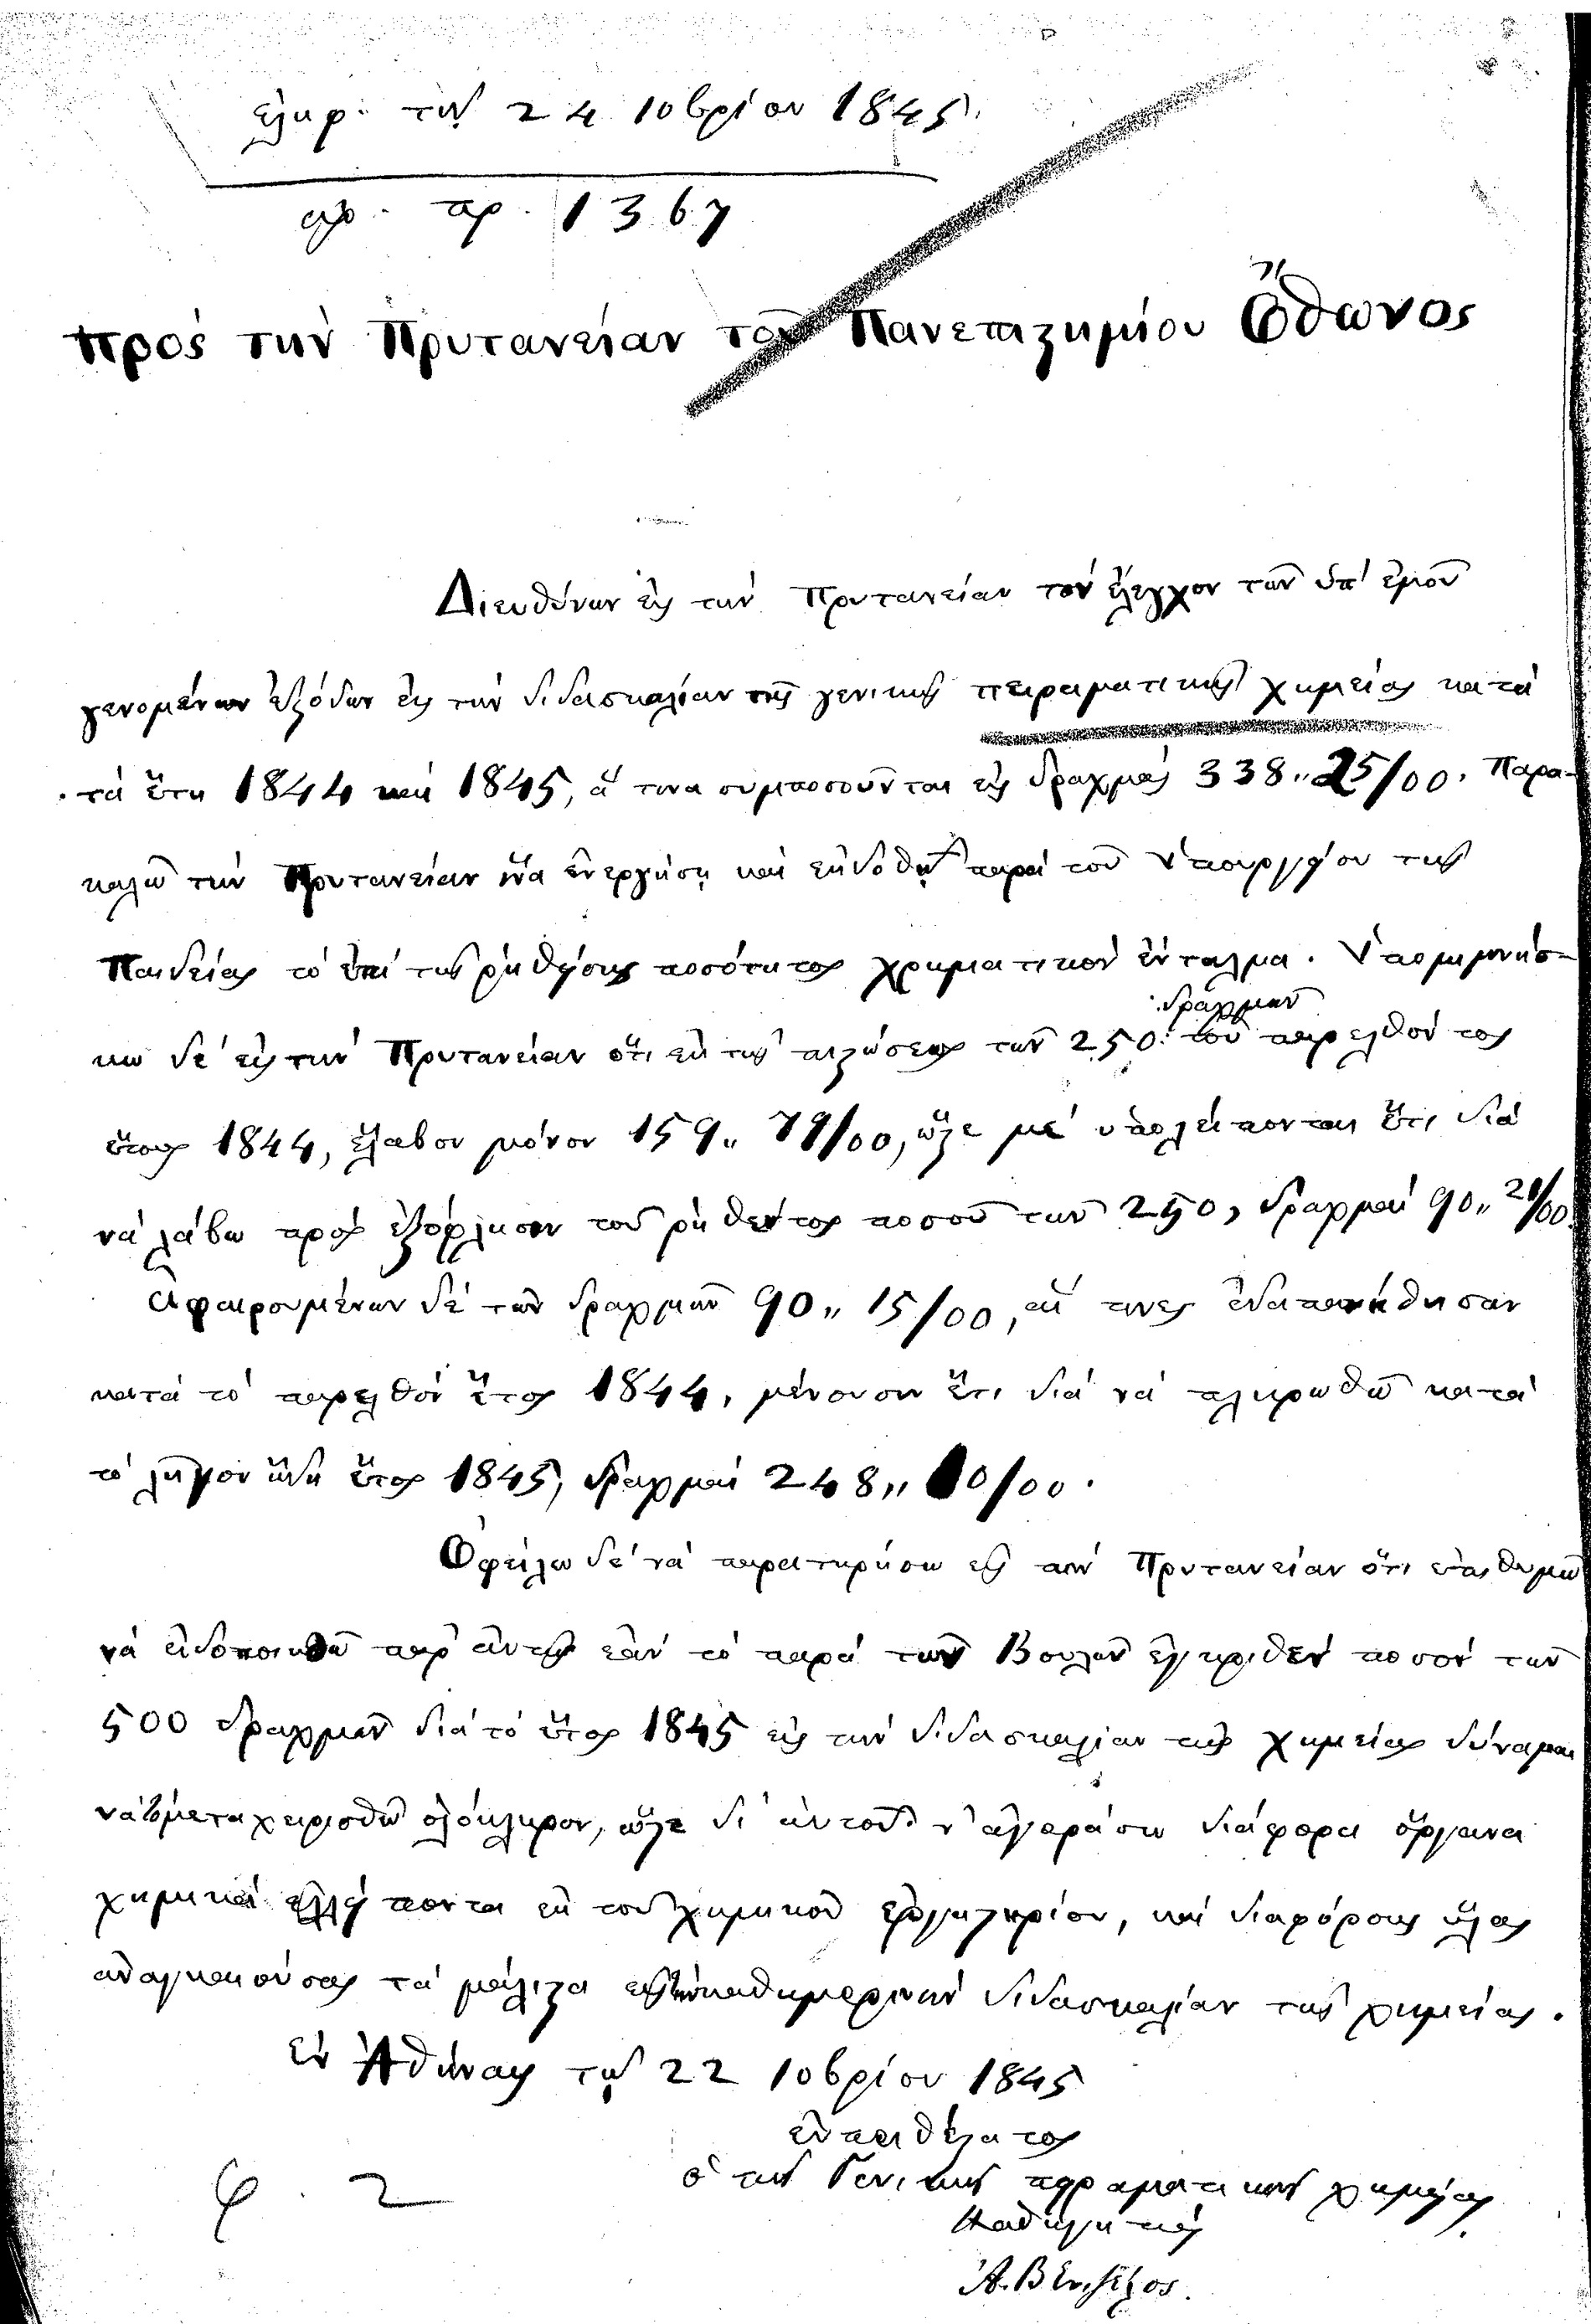 ἐλήφ. τῇ 24 10βρίου 1845
ἀρ. πρ. 1367
Πρὸς τὴν Πρυτανείαν τοῦ Πανεπιστημίου Ὄθωνος
Διευθύνων εἰς τὴν Πρυτανείαν τὸν ἔλεγχον τῶν ὑπ' ἐμοῦ
γενομένων ἐξόδων εἰς τὴν διδασκαλίαν τῆς γενικῆς πειραματικῆς χημείας κατὰ
τὰ ἔτη 1844 καὶ 1845, ἅ τινα συμποσοῦνται εἰς δραχμὰς 338,, 25/00. Παρα-
καλῶ τὴν Πρυτανείαν ἵνα ἐνεργήσῃ καὶ ἐκδοθῇ παρὰ τοῦ Ὑπουργείου τῆς
Παιδείας τὸ ἐπὶ τῆς ῥηθείσης ποσότητος χρηματικὸν ἔνταλμα. Ὑπομιμνήσ-
κω δὲ εἰς τὴν Πρυτανείαν ὅτι ἐκ τῆς πιστώσεως τῶν 250 δραχμῶν τοῦ παρελθόντος
ἔτους 1844, ἔλαβον μόνον 159,, 79/00, ὥστε μὲ ὑπολείπονται ἔτι διὰ
νὰ λάβω πρὸς ἐξόφλησιν τοῦ ῥηθέντος ποσοῦ τῶν 250, δραχμαὶ 90,, 21/00.
Ἀφαιρουμένων δὲ τῶν δραχμῶν 90,, 15/00, αἵ τινες ἐδαπανήθησαν
κατὰ τὸ παρελθὸν ἔτος 1844, μένουσιν ἔτι διὰ νὰ πληρωθῶ κατὰ
τὸ λῆγον ἤδη ἔτος 1845, δραχμαὶ 248,, 10/00.
Ὀφείλω δὲ νὰ παρατηρήσω εἰς τὴν Πρυτανείαν ὅτι ἐπιθυμῶ
νὰ εἰδοποιηθῶ παρ' αὐτῆς ἐὰν τὸ παρὰ τῶν Βουλῶν ἐγκριθὲν ποσὸν τῶν
500 δραχμῶν διὰ τὸ ἔτος 1845 εἰς τὴν διδασκαλίαν τῆς χημείας δύναμαι
νὰ τὸ μεταχειρισθῶ ὁλόκληρον, ὥστε δι' αὐτοῦ ν' ἀγοράσω διάφορα ὄργανα
χημικὰ ἐλλείποντα ἐκ τοῦ χημικοῦ ἐργαστηρίου, καὶ διαφόρους ὕλας
ἀναγκαιούσας τὰ μάλιστα εἰς τὴν καθημερινὴν διδασκαλίαν τῆς χημείας.
Ἐν Ἀθήναις τῇ 22 10βρίου 1845
εὐπειθέστατος
ὁ τῆς Γενικῆς πειραματικῆς χημείας
Καθηγητὴς
Ἀ. Βενιζέλος.
φ. 2